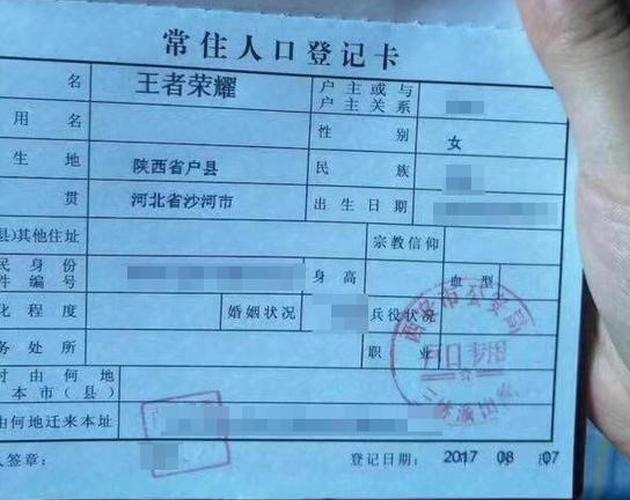 常住人口登记卡
名 王者荣耀 户主或与
户主关系
用名 性别 女
生地 陕西省户县 民族
贯 河北省沙河市 出生日期
县)其他住址 宗教信仰
民身份
件编号 身高 血型
化程度 婚姻状况 兵役状况
务处所 职业
时由何地
本市(县)
由何地迁来本址
人签章: 登记日期: 2017 08 07
西安市公安局
户口专用